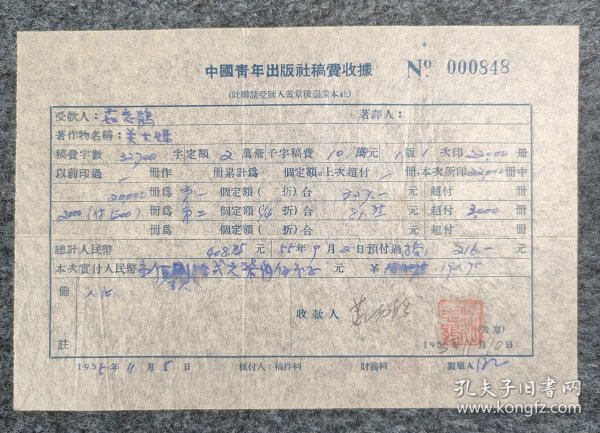 中國青年出版社稿費收據 № 000848
(此聯請受欵人蓋章後退還本社)
受款人:茹志鵑 著譯人:
著作物名稱:关大妈
稿費字數 32700 字定額 2 萬冊千字稿費 10 萬元 1 版 1 次印 22000 冊
以前印過 冊作 冊累計爲 個定額上次超付 冊本次所印 22000 冊中
20000 冊爲 第一 個定額( 折)合 327.- 元 超付 冊
2000(付500) 冊爲 第二 個定額(1/4 折)合 81.75 元 超付 3000 冊
冊爲 個定額( 折)合 元 超付 冊
總計人民幣 408.75 元 55年9月2日預付過 216.- 元
本次實付人民幣 元 ¥ 192.75
備
收款人 (簽章)
註
1955年11月10日
1955年11月5日 核付人:稿件科 財務科 製單人
孔夫子旧书网
www.kongfz.com